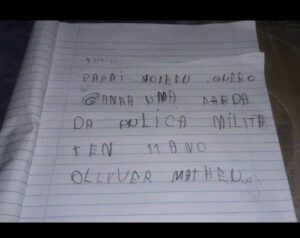 PAPAI NOHEEU QUERO
GANHA UMA FARDA
DA PULIÇA MILITA
TEN 11 ANO
OLLIVVER MATHEUS